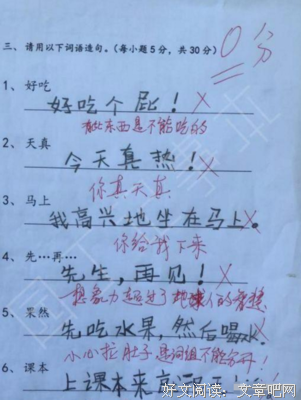 三、请用以下词语造句。(每小题5分，共30分)
0分
1、好吃
好吃个屁！
此东西是不能吃的
2、天真
今天真热！
你真天真
3、马上
我高兴地坐在马上。
你给我下来
4、先…再…
先生，再见！
想象力超过了地球人的智慧
5、果然
先吃水果，然后喝水。
小心拉肚子 是词组不能分开！
6、课本
上课本来
好文阅读：文章吧网